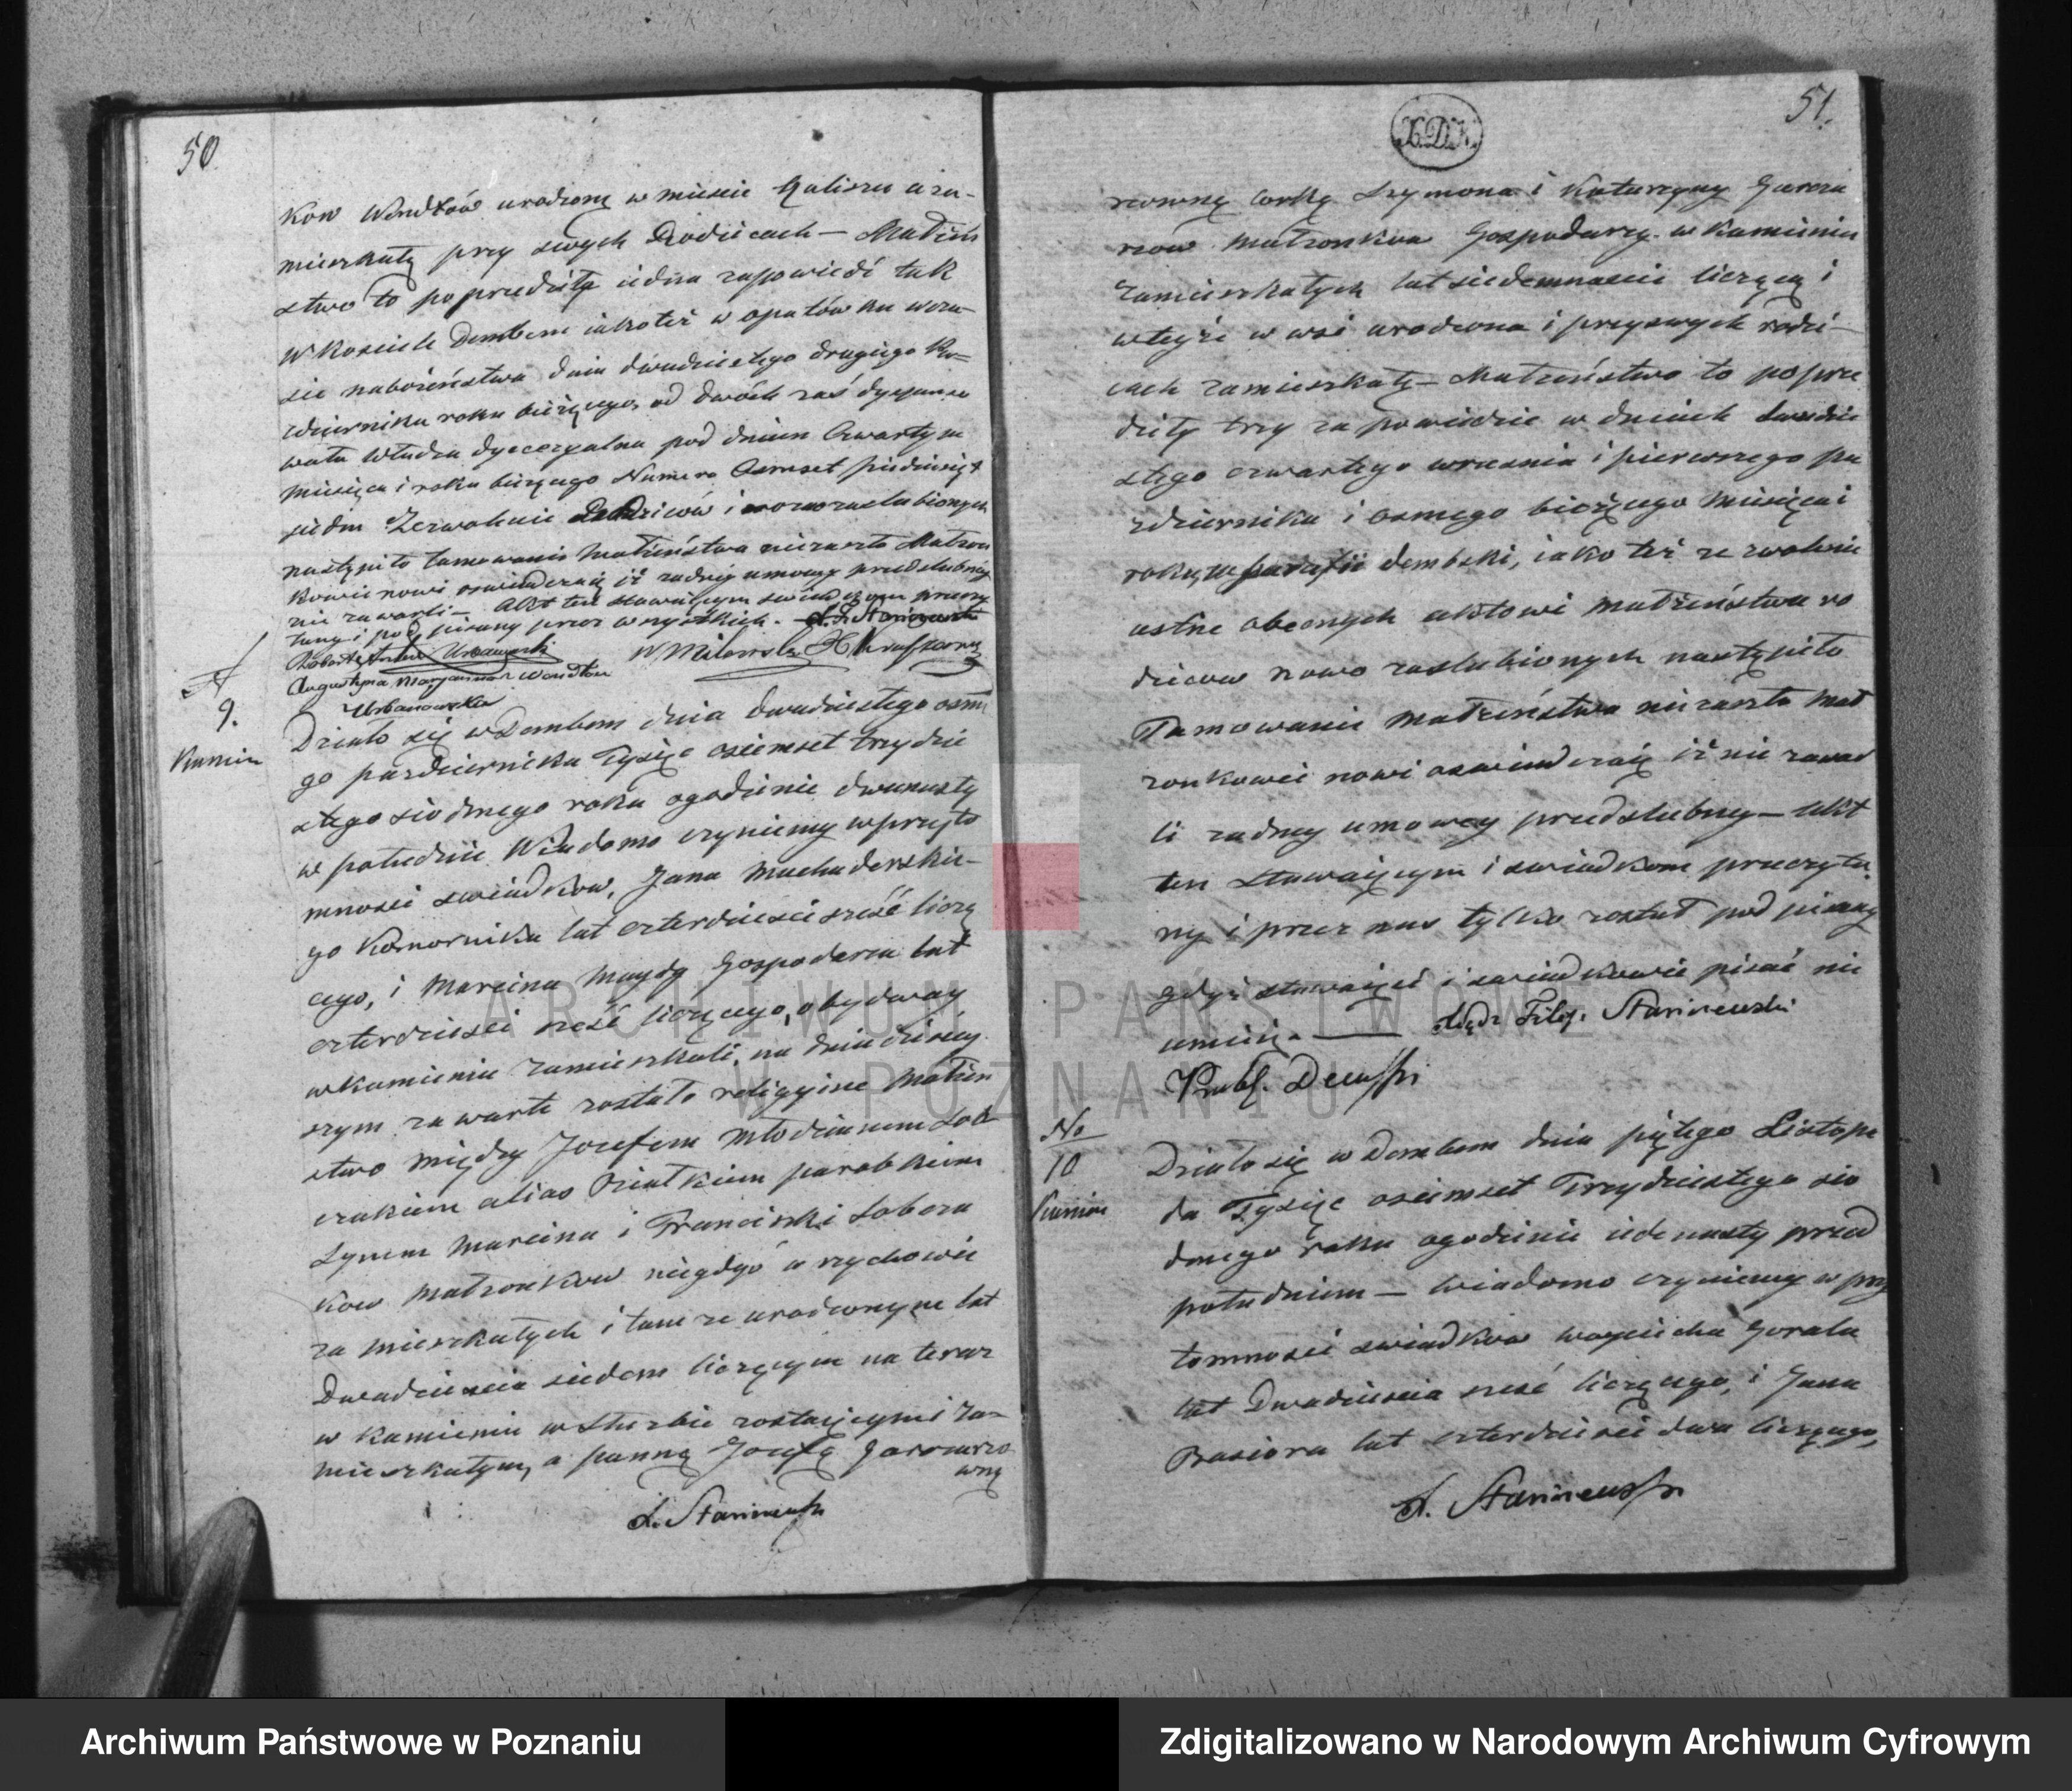 50
kow Wendtów urodzoną w mieście Kaliszu a za-
mieszkałą przy swych Rodzicach — Małżeń
stwo to poprzedziła iedna zapowiedź tak
w Kościele Dembem iakoteż w opatówku w cza-
sie nabożeństwa dnia dwudziestego drugiego Pa-
zdziernika roku bieżącego, od dwóch zaś dyspenso
wała Władza dyecezyalna pod dniem Czwartym
miesiąca i roku bieżącego Numero Osmset
siedm Zezwolenie Rodziców i nowozaslubionych
nastąpiło tamowanie małżeństwa niezaszło Małżon
kowie nowi oswiadczaią iż żadney umowy przedslubney
nie zawarli — Akt ten stawaiącym swiadkom przeczy
tany i podpisany przez wszystkich. — X. F. Staniszewski
Urbanowski W Milewski
Augustyna Maryanna Wendtów
Urbanowska
N
9.
Kamień
Działo się w Dembem dnia dwudziestego osme
go pazdziernika Tysiąc osiemset trzydzie
stego siodmego roku ogodzinie dwunasty
w południe Wiadomo czyniemy w przyto
mnosci swiadkow, Jana Muchaderskie-
go Komornika lat czterdziesci sześć liczą
cego, i Marcina Maydy Gospodarza lat
czterdziesci sześć liczącego, obydway
w Kamieniu zamieszkali, na dniu dzisiey
szym zawarte zostało religyine Małżen
stwo między Jozefem Młodzianem Sob
czakiem alias Ziułkiem parobkiem
Synem Marcina i Franciszki Sobcza
kow Małżonkow niegdyś w rychowie
zamieszkałych i tamze urodzonym lat
Dwadziescia siedem liczącym na teraz
w Kamieniu w Służbie zostaiącym i za-
mieszkałym, a panną Jozefą Garcarzo
wną
X. Staniszewski
51.
K.D.K.
rzowną Corką Szymona i Katarzyny Garcar
rzow Małżonkow Gospodarzy w Kamieniu
Zamieszkałych lat siedemnascie liczącą i
wteyże wsi urodzona i przyswych rodzi-
cach zamieszkałą — Małżeństwo to poprze
dziły trzy zapowiedzie w dniach dwudzie
stego czwartego wrzesnia i pierwszego pa
zdziernika i osmego bieżącego miesiąca i
roku, w parafii dembski, iako też zezwolenie
ustne obecnych aktowi Małżeństwa ro
dzicow nowo zaslubionych nastąpiło
Tamowanie Małżeństwa niezaszło Mał
żonkowie nowi oswiadczaią iż nie zawar
li żadney umowey przedslubney — Akt
ten Stawaiącym i swiadkom przeczyta
ny i przez nas tylko został podpisany
gdyż stawaiący i swiadkowie pisać nie
umieią. — Xiądz Filip. Staniszewski
Prob. Dembski
No
10
Kamień
Działo się w Dembem dnia piątego Listopa
da Tysiąc osiemset Trzydziestego sio
dmego roku ogodzinie iedenasty przed
południem — Wiadomo czyniemy w przy
tomnosci swiadkow Woyciecha Gorala
lat Dwadziescia sześć liczącego, i Jana
Basiora lat czterdziesci dwa liczącego,
X. Staniszewski
ARCHIWUM PAŃSTWOWE
W POZNANIU
Archiwum Państwowe w Poznaniu
Zdigitalizowano w Narodowym Archiwum Cyfrowym